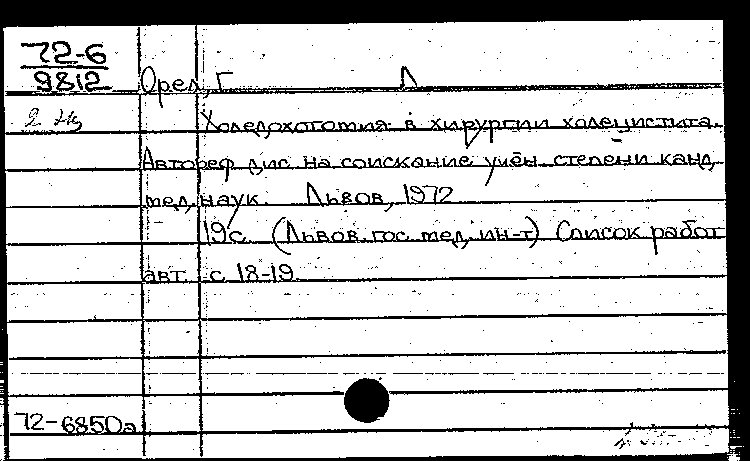 72-6
9812
Орел, Г Л
2 
Холедохотомия в хирургии холецистита.
Автореф дис. на соискание учён. степени канд.
мед. наук. Львов, 1972
19с. (Львов. гос. мед. ин-т) Список работ
авт. с 18-19
72-6850а